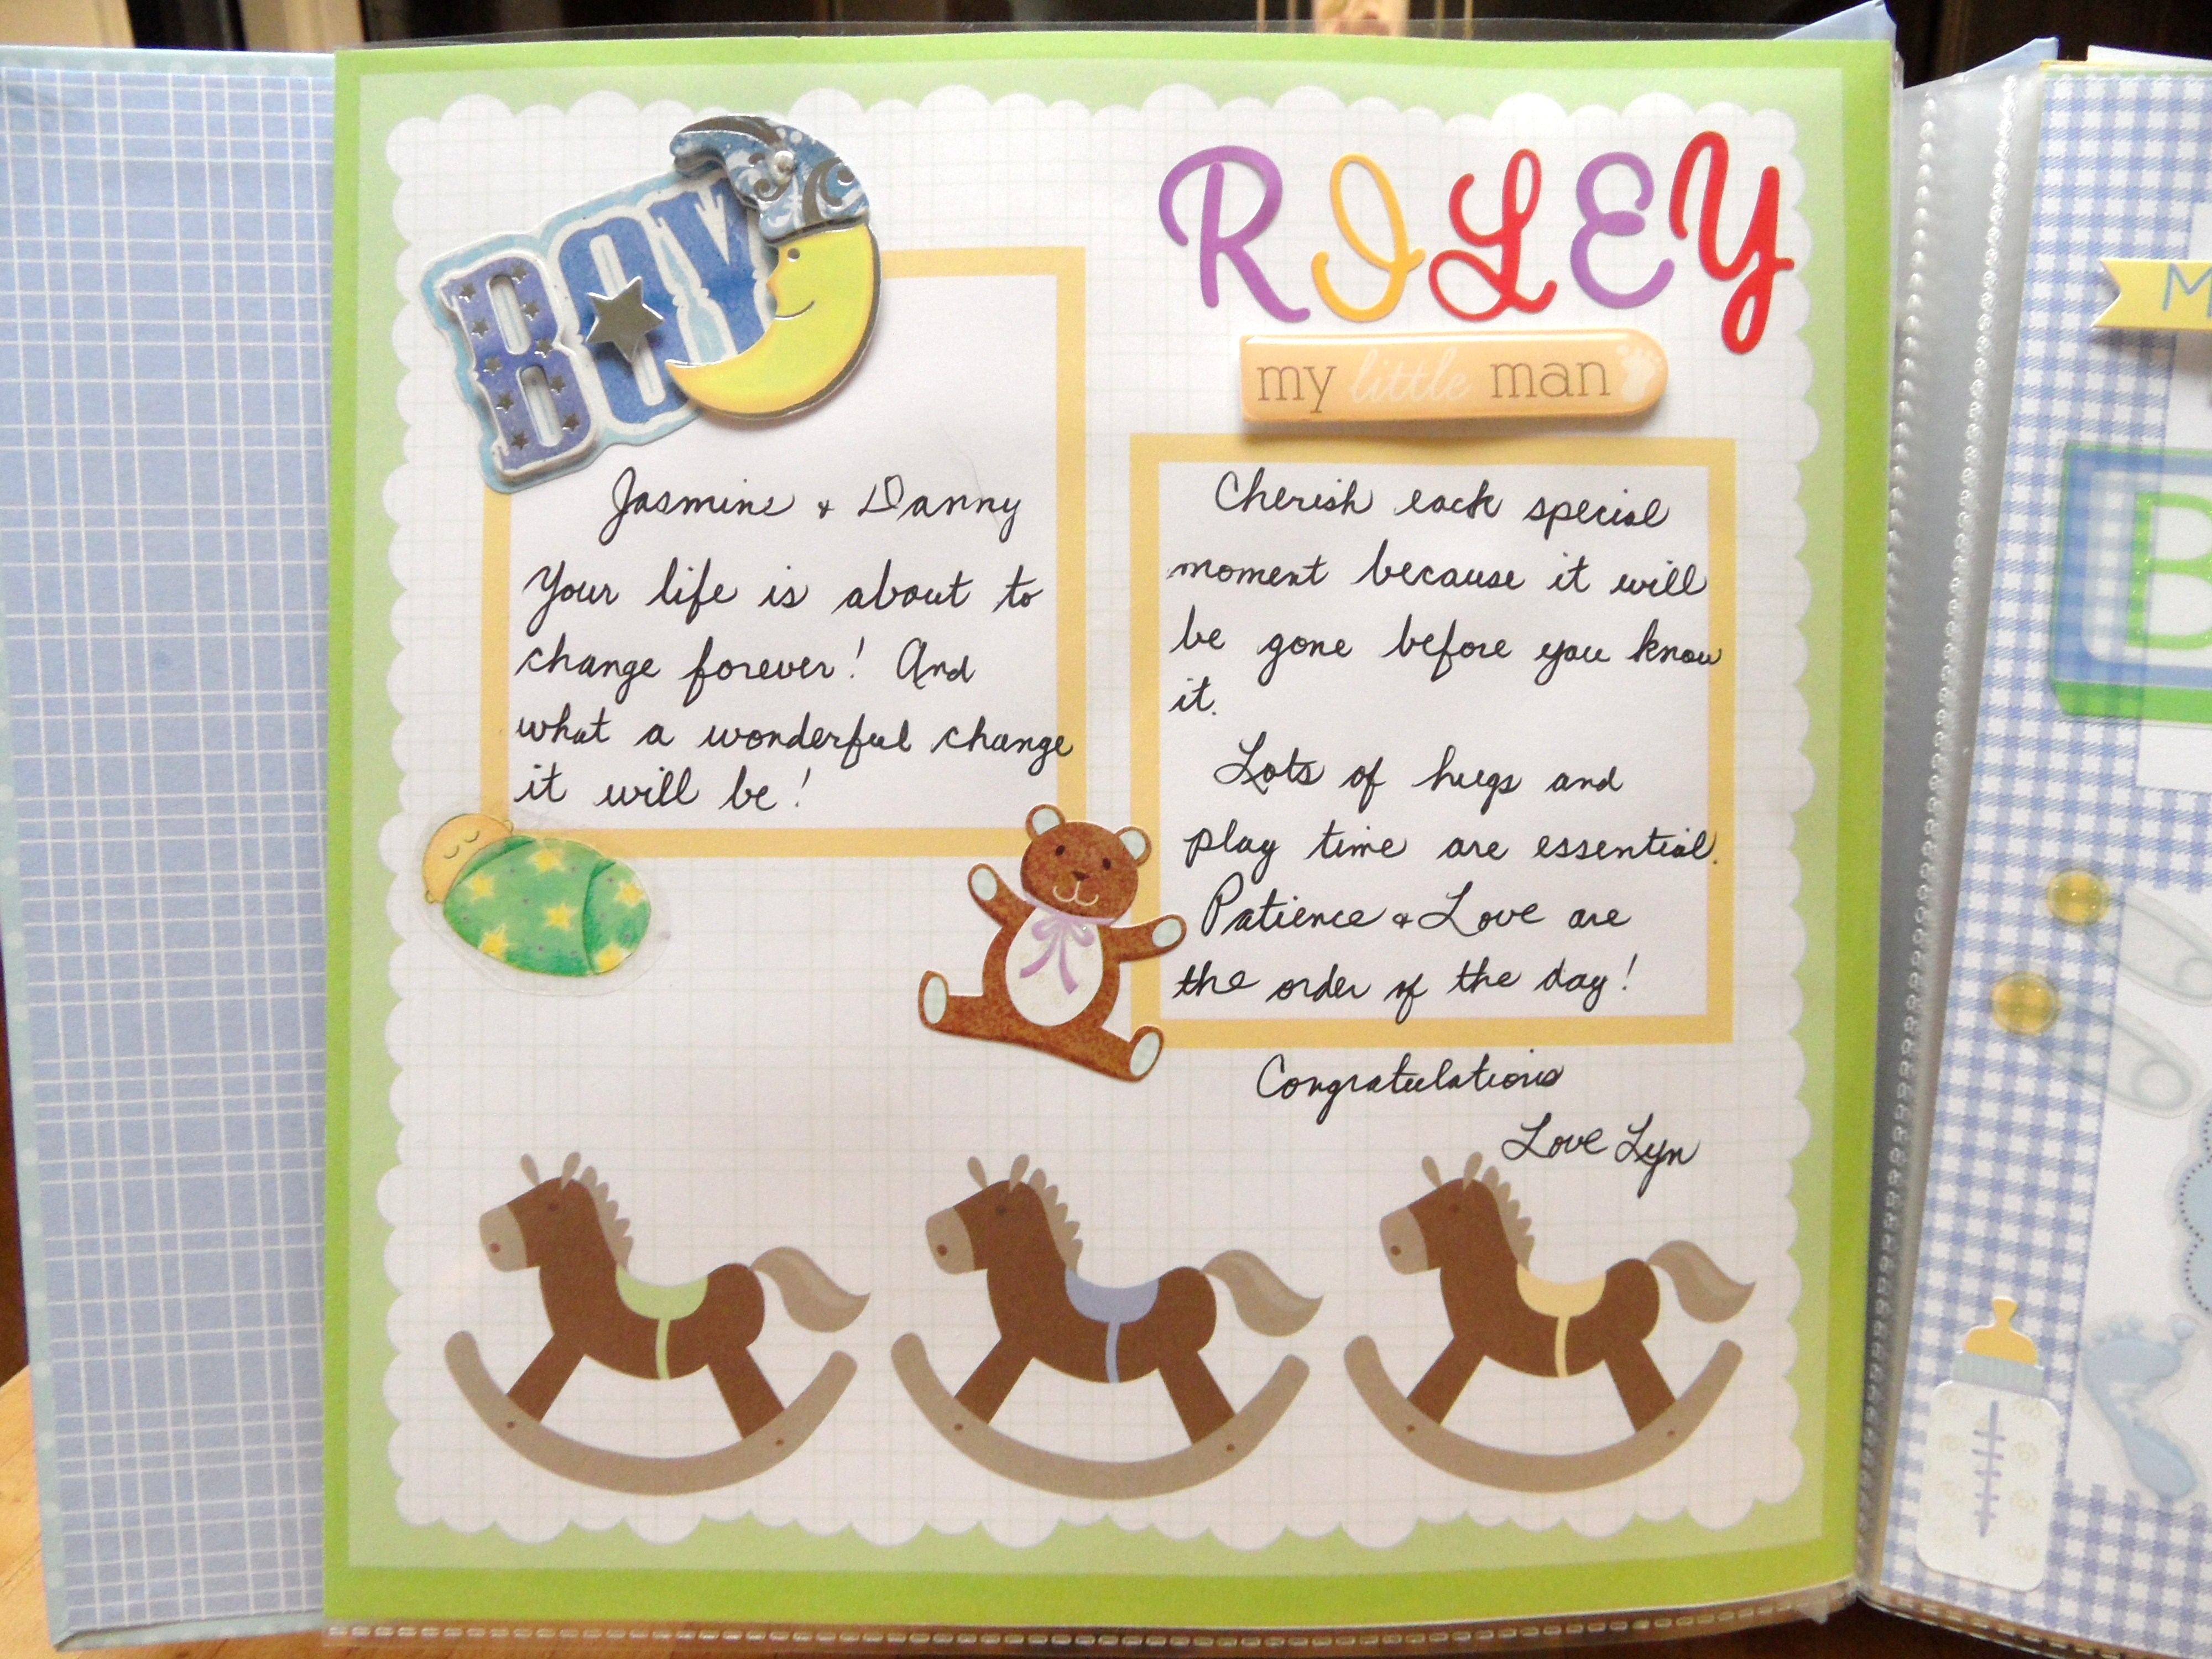 BOY
Jasmine & Danny
Your life is about to
change forever! And
what a wonderful change
it will be!
RILEY
my little man
Cherish each special
moment because it will
be gone before you know
it.
Lots of hugs and
play time are essential.
Patience & Love are
the order of the day!
Congratulations
Love Lyn
M
B